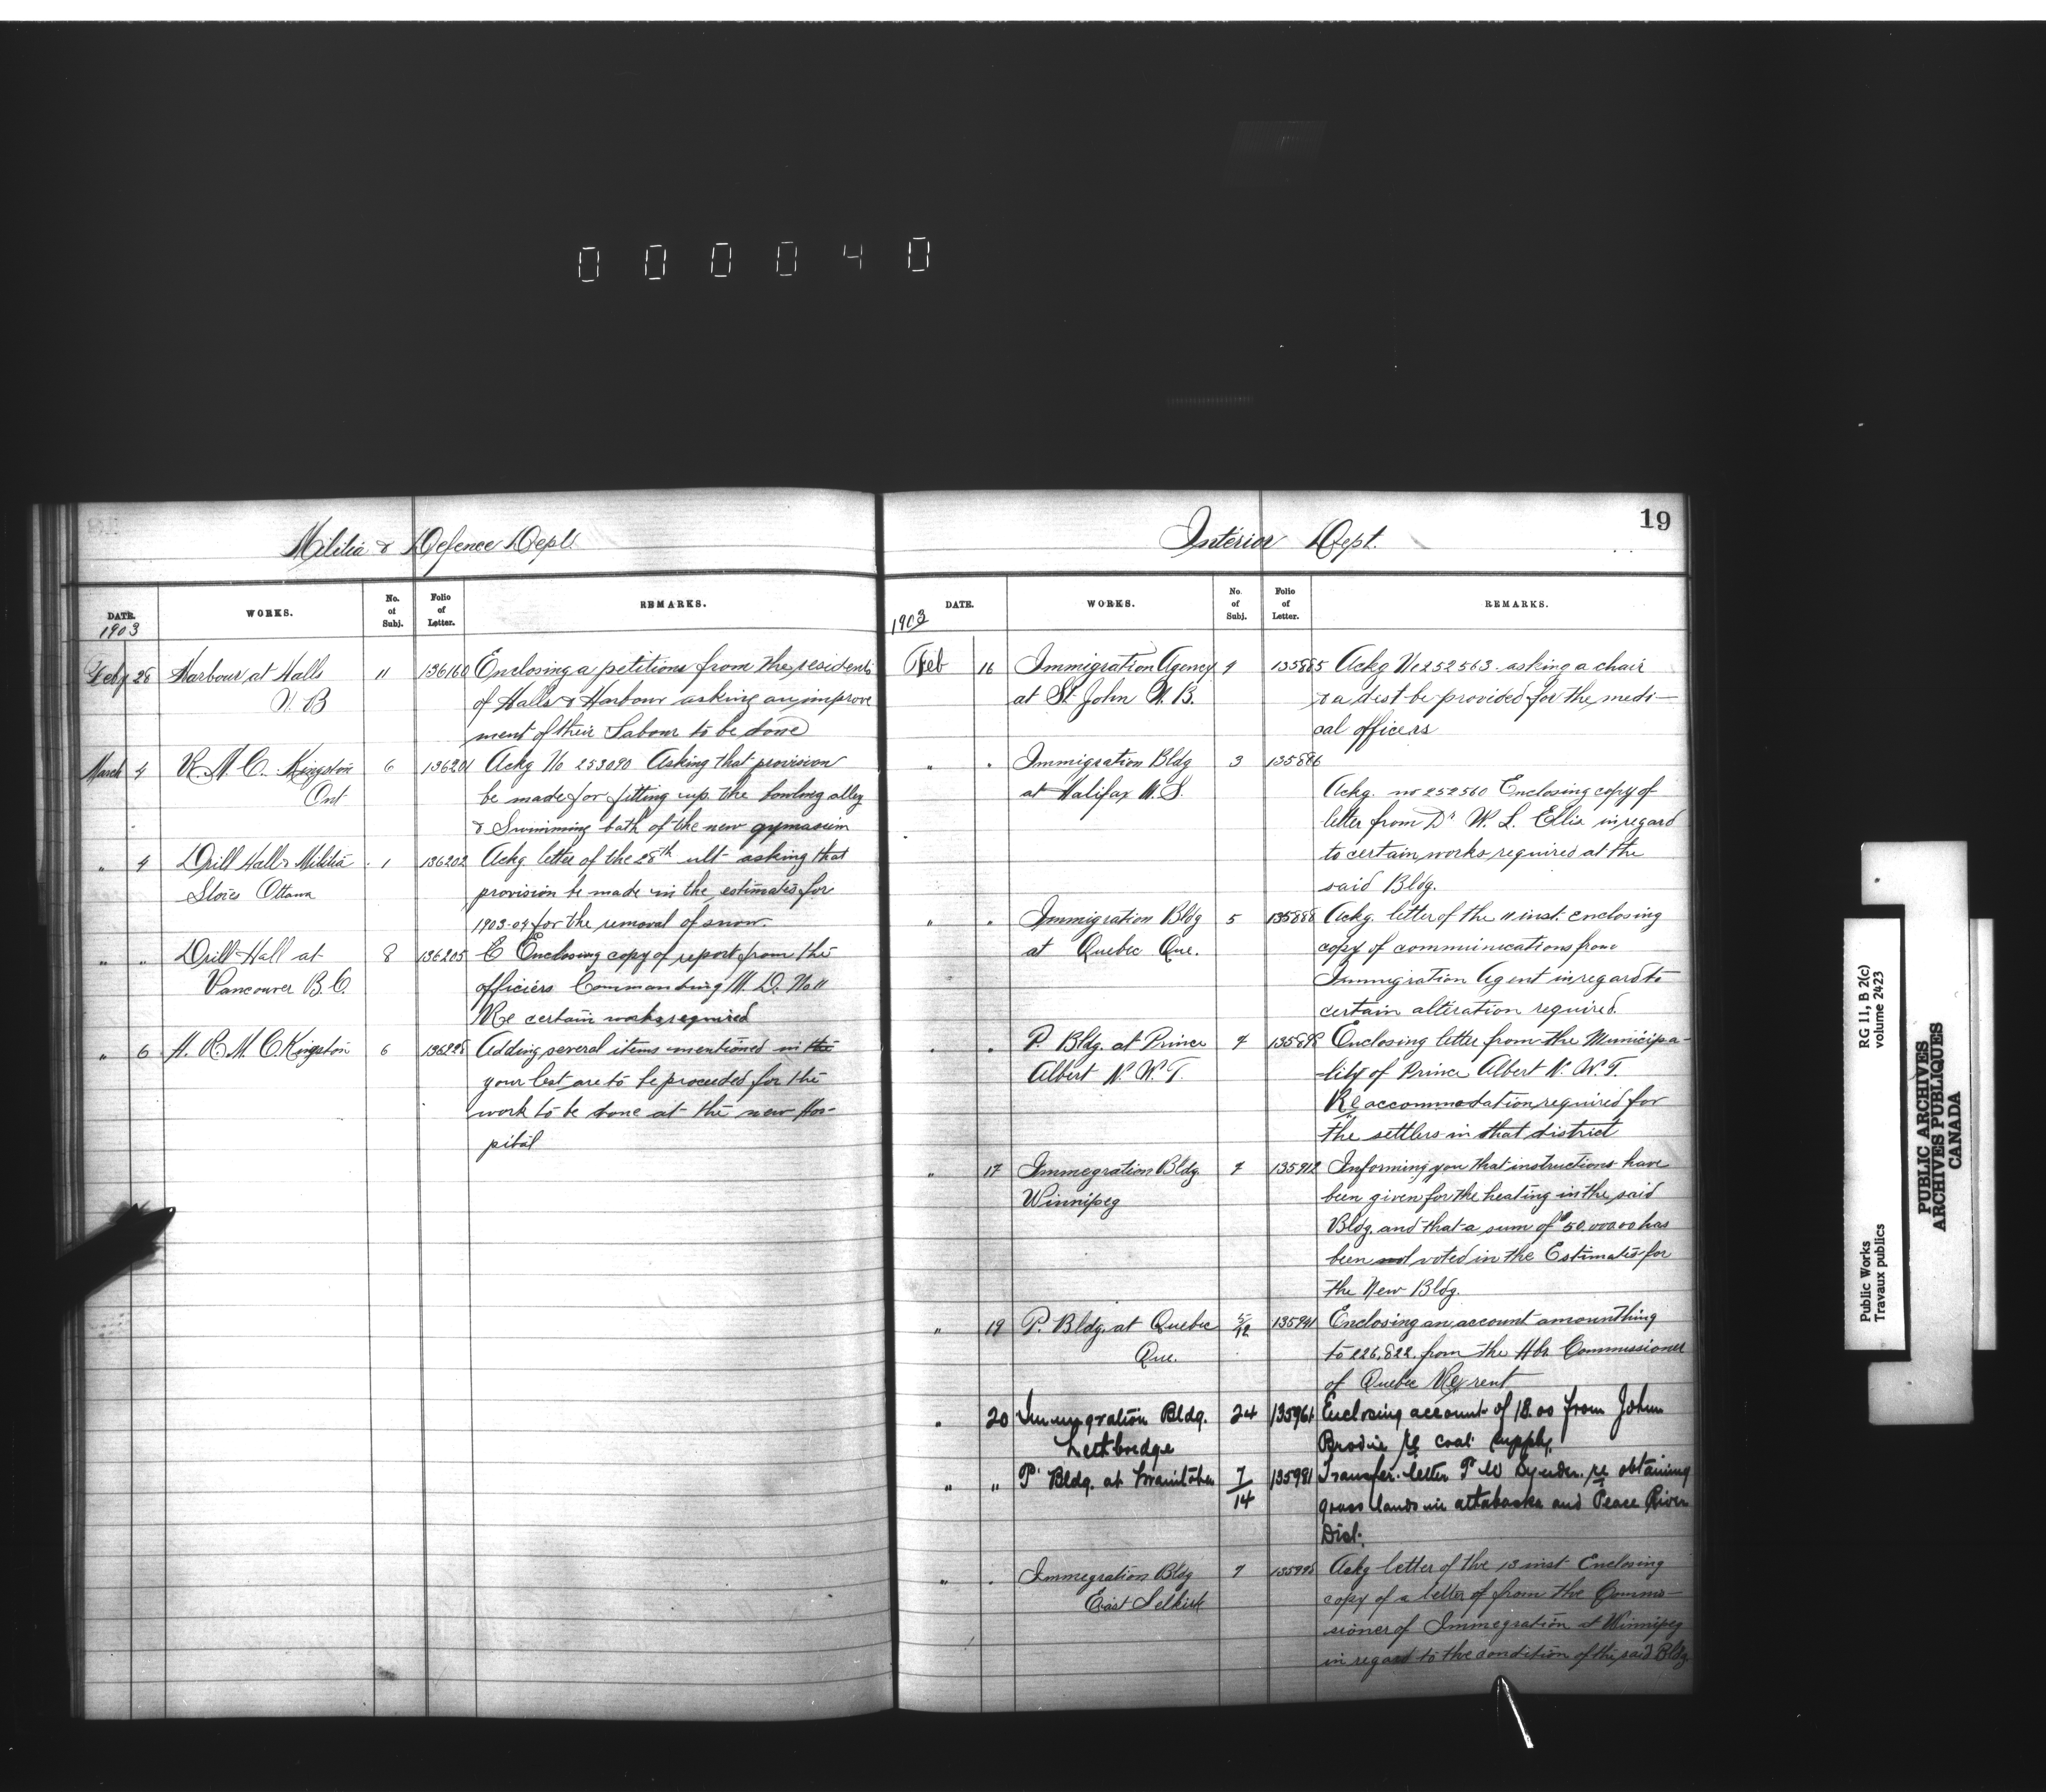 000040
Militia & Defence Dept.
DATE. WORKS. No. of Subj. Folio of Letter. REMARKS.
1903
Feby 28 Harbour at Halls 11 136160 Enclosing a petitions from the residents
N. B of Halls & Harbour asking an improve
ment of their Labour to be done
March 4 R. M. C. Kingston 6 136201 Ackg No 253090 Asking that provision
Ont be made for fitting up the bowling alley
& Swimming bath of the new gymasium
" 4 Drill Hall & Militia 1 136202 Ackg letter of the 28th ult asking that
Stores Ottawa provision be made in the estimates for
1903-04 for the removal of snow.
" " Drill Hall at 8 136205 C Enclosing copy of report from the
Vancouver B. C. officiers Commanding M. D. No 11
Re certain works required
" 6 H. R. M. C. Kingston 6 136228 Adding several items mentioned in the
your lest are to be proceeded for the
work to be done at the new Hos-
pital
19
Interior Dept.
DATE. WORKS. No. of Subj. Folio of Letter. REMARKS.
1903
Feb 16 Immigration Agency 9 135885 Ackg No 252563 asking a chair
at St. John N. B. & a dest be provided for the medi-
cal officers
" " Immigration Bldg 3 135886
at Halifax N. S. Ackg. no 252560 Enclosing copy of
letter from Dr W. L. Ellis in regard
to certain works required at the
said Bldg.
" " Immigration Bldg 5 135888 Ackg. letter of the 11 inst. enclosing
at Quebec Que. copy of communications from
Immigration Agent in regard to
certain alteration required.
" " P. Bldg. at Prince 7 135898 Enclosing letter from the Municipa-
Albert N. W. T. lity of Prince Albert N. W. T.
Re accommodation required for
the settlers in that district
" 17 Immegration Bldg 7 135912 Informing you that instructions have
Winnipeg been given for the heating in the said
Bldg. and that a sum of $50.000.00 has
been not voted in the Estimates for
the New Bldg.
" 19 P. Bldg. at Quebec 5/12 135941 Enclosing an account amounthing
Que. to 226.822. from the Hbr. Commissioner
of Quebec Re rent
" 20 Immigration Bldg. 24 135961 Enclosing account of 18.00 from John
Lethbridge Brodie re coal supply.
" " P. Bldg. at Manitoba 7/14 135981 Transfer letter P W Snyder re obtaining
grass lands in attabaska and Peace River
Dist.
" " Immegration Bldg 7 135998 Ackg letter of the 13 inst Enclosing
East Selkirk copy of a letter of from the Commi-
sioner of Immegration at Winnipeg
in regard to the condition of the said Bldg
Public Works
Travaux publics
RG 11, B 2(c)
volume 2423
PUBLIC ARCHIVES
ARCHIVES PUBLIQUES
CANADA